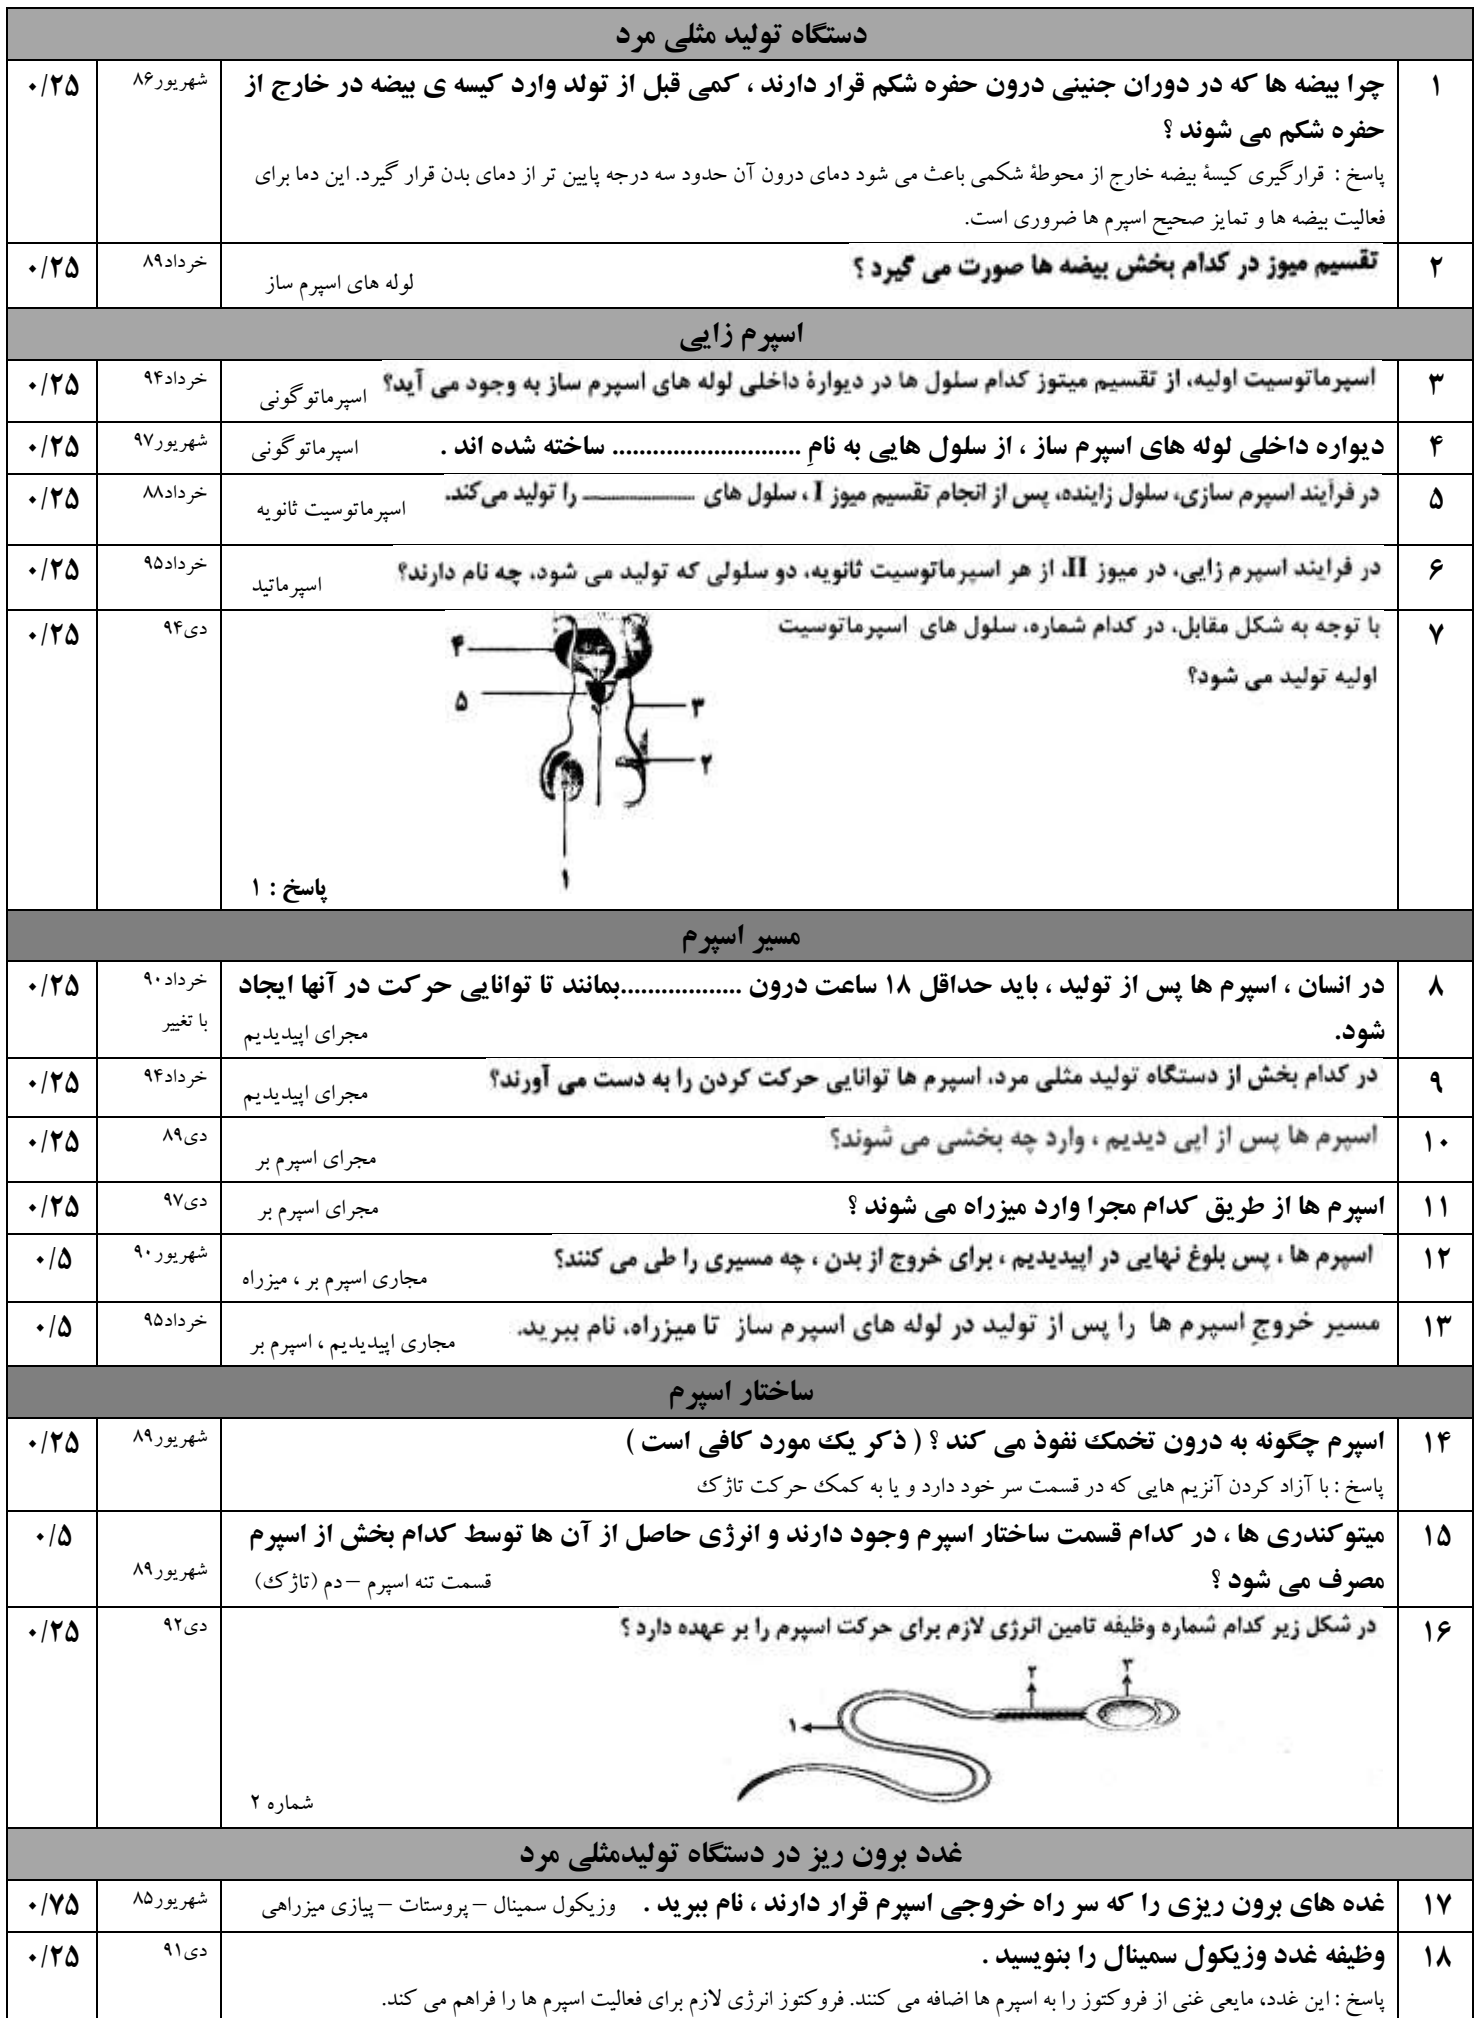 دستگاه تولید مثلی مرد
۱ چرا بیضه ها که در دوران جنینی درون حفره شکم قرار دارند ، کمی قبل از تولد وارد کیسه ی بیضه در خارج از شهریور۸۶ ۰/۲۵
حفره شکم می شوند ؟
پاسخ : قرارگیری کیسۀ بیضه خارج از محوطۀ شکمی باعث می شود دمای درون آن حدود سه درجه پایین تر از دمای بدن قرار گیرد. این دما برای
فعالیت بیضه ها و تمایز صحیح اسپرم ها ضروری است.
۲ تقسیم میوز در کدام بخش بیضه ها صورت می گیرد ؟ لوله های اسپرم ساز خرداد۸۹ ۰/۲۵
اسپرم زایی
۳ اسپرماتوسیت اولیه، از تقسیم میتوز کدام سلول ها در دیوارۀ داخلی لوله های اسپرم ساز به وجود می آید؟ اسپرماتوگونی خرداد۹۴ ۰/۲۵
۴ دیواره داخلی لوله های اسپرم ساز ، از سلول هایی به نامِ ............................ ساخته شده اند . اسپرماتوگونی شهریور۹۷ ۰/۲۵
۵ در فرآیند اسپرم سازی، سلول زاینده، پس از انجام تقسیم میوز I ، سلول های ــــــــــــ را تولید می‌کند. اسپرماتوسیت ثانویه خرداد۸۸ ۰/۲۵
۶ در فرایند اسپرم زایی، در میوز II، از هر اسپرماتوسیت ثانویه، دو سلولی که تولید می شود، چه نام دارند؟ اسپرماتید خرداد۹۵ ۰/۲۵
۷ با توجه به شکل مقابل، در کدام شماره، سلول های اسپرماتوسیت دی۹۴ ۰/۲۵
اولیه تولید می شود؟
۴
۵
۳
۲
۱
پاسخ : ۱
مسیر اسپرم
۸ در انسان ، اسپرم ها پس از تولید ، باید حداقل ۱۸ ساعت درون ..................بمانند تا توانایی حرکت در آنها ایجاد خرداد۹۰ ۰/۲۵
شود. مجرای اپیدیدیم با تغییر
۹ در کدام بخش از دستگاه تولید مثلی مرد، اسپرم ها توانایی حرکت کردن را به دست می آورند؟ مجرای اپیدیدیم خرداد۹۴ ۰/۲۵
۱۰ اسپرم ها پس از اپی دیدیم ، وارد چه بخشی می شوند؟ مجرای اسپرم بر دی۸۹ ۰/۲۵
۱۱ اسپرم ها از طریق کدام مجرا وارد میزراه می شوند ؟ مجرای اسپرم بر دی۹۷ ۰/۲۵
۱۲ اسپرم ها ، پس بلوغ نهایی در اپیدیدیم ، برای خروج از بدن ، چه مسیری را طی می کنند؟ مجاری اسپرم بر ، میزراه شهریور۹۰ ۰/۵
۱۳ مسیر خروجِ اسپرم ها را پس از تولید در لوله های اسپرم ساز تا میزراه، نام ببرید. مجاری اپیدیدیم ، اسپرم بر خرداد۹۵ ۰/۵
ساختار اسپرم
۱۴ اسپرم چگونه به درون تخمک نفوذ می کند ؟ ( ذکر یک مورد کافی است ) شهریور۸۹ ۰/۲۵
پاسخ : با آزاد کردن آنزیم هایی که در قسمت سر خود دارد و یا به کمک حرکت تاژک
۱۵ میتوکندری ها ، در کدام قسمت ساختار اسپرم وجود دارند و انرژی حاصل از آن ها توسط کدام بخش از اسپرم ۰/۵
مصرف می شود ؟ قسمت تنه اسپرم – دم (تاژک) شهریور۸۹
۱۶ در شکل زیر کدام شماره وظیفه تامین انرژی لازم برای حرکت اسپرم را بر عهده دارد ؟ دی۹۲ ۰/۲۵
۳
۲
۱
شماره ۲
غدد برون ریز در دستگاه تولیدمثلی مرد
۱۷ غده های برون ریزی را که سر راه خروجی اسپرم قرار دارند ، نام ببرید . وزیکول سمینال – پروستات – پیازی میزراهی شهریور۸۵ ۰/۷۵
۱۸ وظیفه غدد وزیکول سمینال را بنویسید . دی۹۱ ۰/۲۵
پاسخ : این غدد، مایعی غنی از فروکتوز را به اسپرم ها اضافه می کنند. فروکتوز انرژی لازم برای فعالیت اسپرم ها را فراهم می کند.